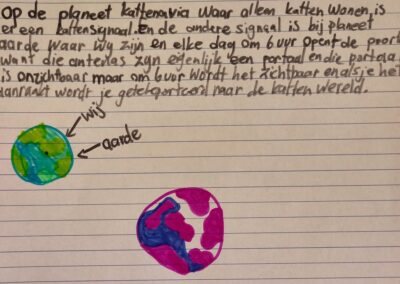 op de planeet kattenavia waar alleen katten wonen, is
er een kattensignaal. En de andere signaal is bij planeet
aarde waar wij zijn en elke dag om 6 uur opent de poort
want die antenas zijn eigenlijk een portaal en die portaal
is onzichtbaar maar om 6 uur wordt het zichtbaar en als je het
aanraakt wordt je geteleporteerd naar de katten wereld.
wij
aarde